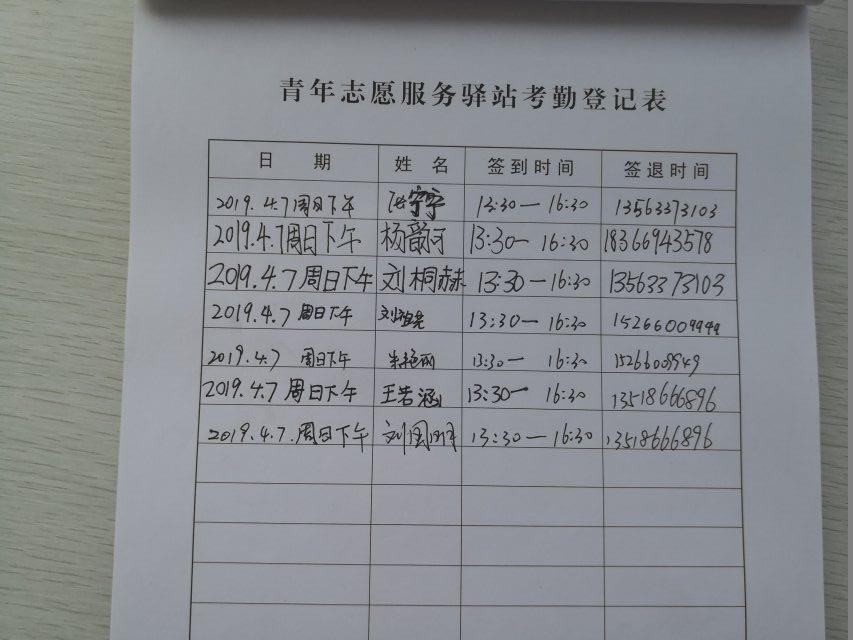 青年志愿服务驿站考勤登记表
日 期 姓 名 签到时间 签退时间
2019.4.7周日下午 张宁宁 13:30— 16:30 13563373103
2019.4.7周日下午 杨 河 13:30— 16:30 18366943578
2019.4.7周日下午 刘桐赫 13:30—16:30 13563373103
2019.4.7周日下午 刘祖尧 13:30— 16:30 15266009949
2019.4.7 周日下午 朱艳丽 13:30— 16:30 15266009949
2019.4.7周日下午 王若涵 13:30— 16:30 13518666896
2019.4.7.周日下午 刘国 13:30—16:30 13518666896